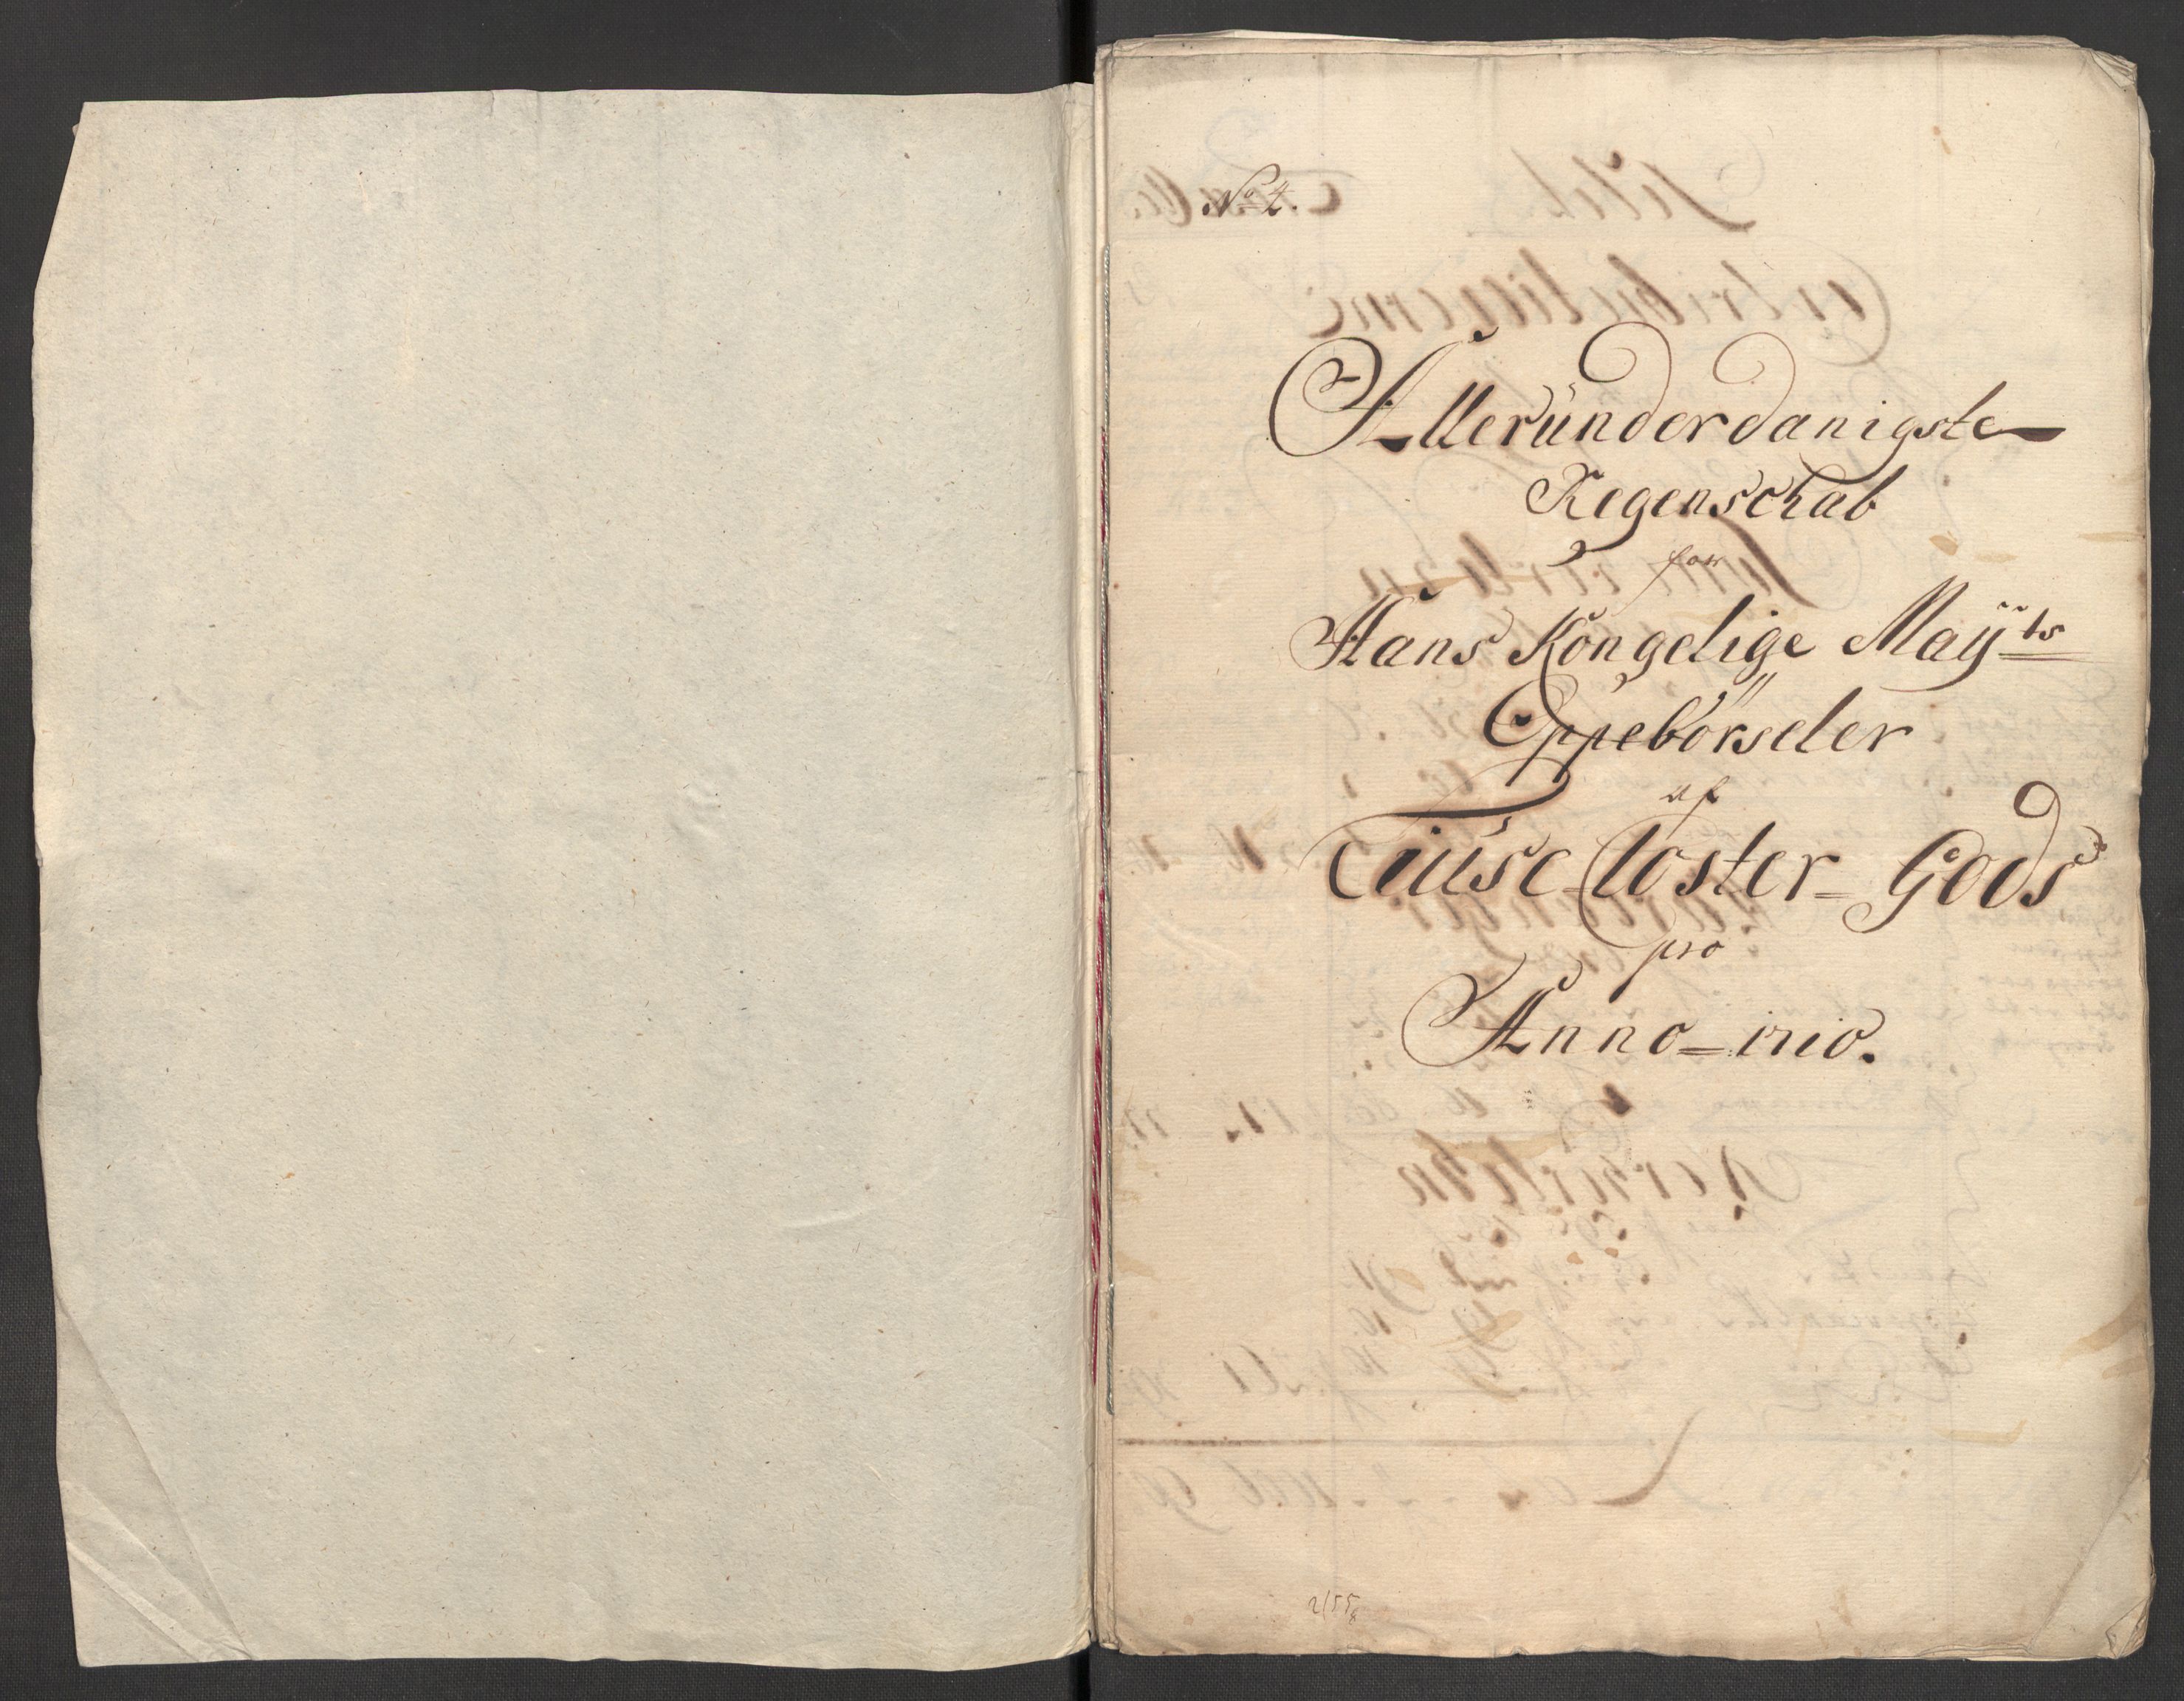 No 4.
Alleründerdanigste
Regenschab
for
Hans Kongelige Mayts
Oppebörseler
af
Tiüse Closter = Gods
pro
Anno = 1710.